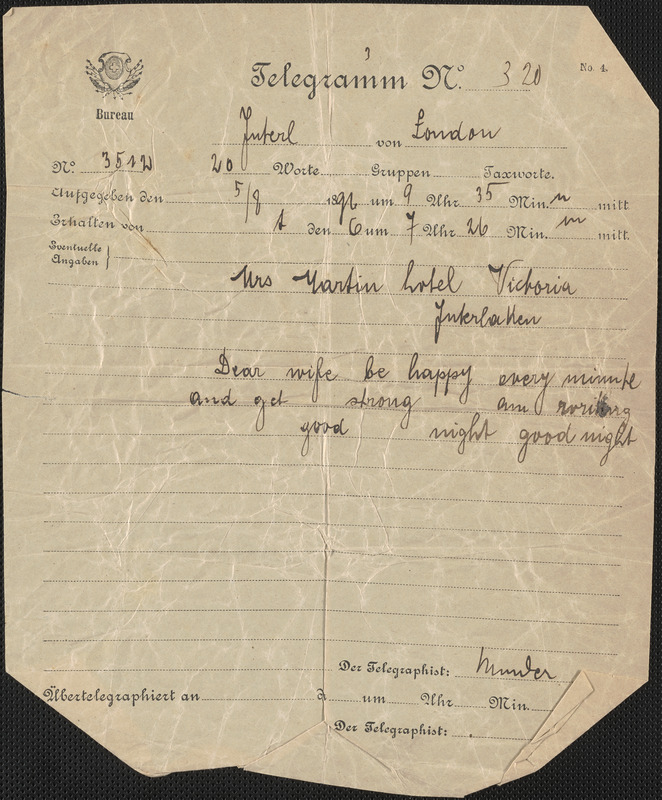 3
Telegramm No. 320
No. 4.
Bureau
Interl von London
No. 3512 20 Worte Gruppen Taxworte.
Aufgegeben den 5/8 1896 um 9 Uhr 35 Min. n mitt.
Erhalten von t den 6 um 7 Uhr 26 Min. m mitt.
Eventuelle Angaben
Mrs Martin hotel Victoria
Interlaken
Dear wife be happy every minute
and get strong am writing
good night good night
Der Telegraphist: Munder
Übertelegraphiert an d um Uhr Min.
Der Telegraphist: